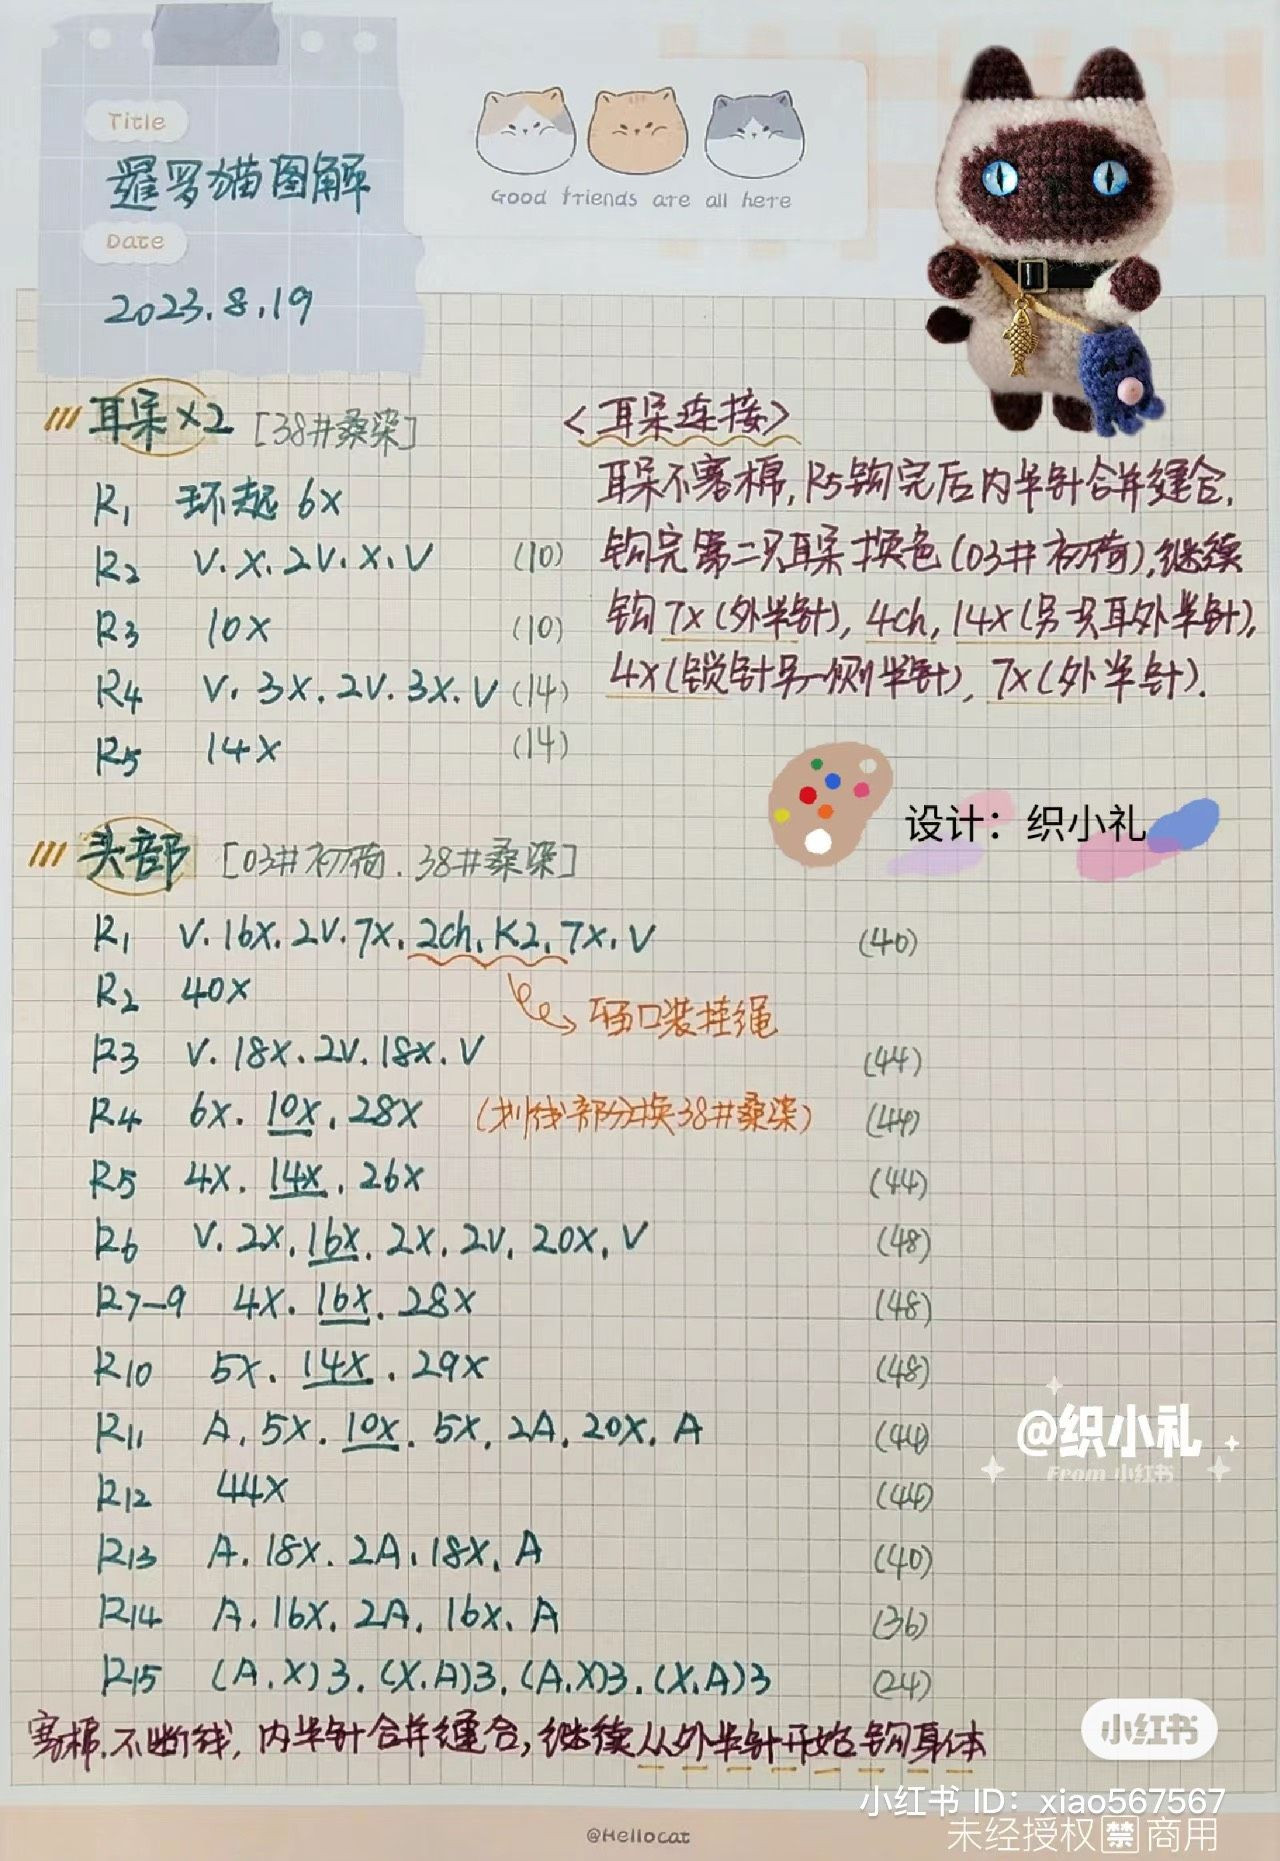 Title
暹罗猫图解
Date
2023.8.19
Good friends are all here
耳朵×2 [38#桑染]
R1 环起 6X
R2 V.X.2V.X.V (10)
R3 10X (10)
R4 V.3X.2V.3X.V (14)
R5 14X (14)
<耳朵连接>
耳朵不塞棉,R5钩完后内半针合并缝合,
钩完第二只耳朵换色(03#初荷),继续
钩7X(外半针),4ch,14X(另只耳外半针),
4X(锁针另一侧半针),7X(外半针).
设计：织小礼
头部 [03#初荷.38#桑染]
R1 V.16X.2V.7X.2ch.K2.7X.V (40)
R2 40X
留口装挂绳
R3 V.18X.2V.18X.V (44)
R4 6X.10X.28X (划线部分换38#桑染) (44)
R5 4X.14X.26X (44)
R6 V.2X.16X.2X.2V.20X.V (48)
R7-9 4X.16X.28X (48)
R10 5X.14X.29X (48)
R11 A.5X.10X.5X.2A.20X.A (44)
R12 44X (44)
R13 A.18X.2A.18X.A (40)
R14 A.16X.2A.16X.A (36)
R15 (A.X)3.(X.A)3.(A.X)3.(X.A)3 (24)
塞棉.不断线,内半针合并缝合,继续从外半针开始钩身体
@织小礼
From 小红书
小红书
小红书 ID：xiao567567
未经授权禁商用
@Hellocat